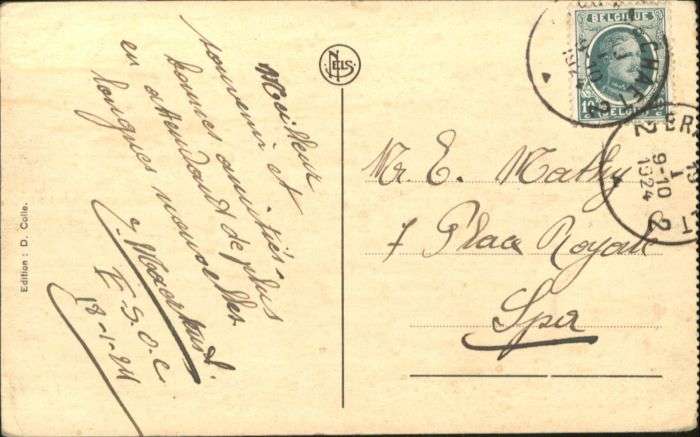 Meilleur
souvenir et
bonnes amitiés
en attendant de plus
longues nouvelles
E.S.O.C
18-1-24
Edition : D. Colle.
NELS
Mr E. Mathy
7 Place Royale
Spa
BELGIQUE
BELGIE
9-10
1924
2
2